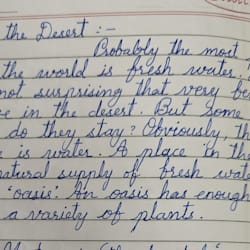 the Desert :-
Probably the most
the world is fresh water.
not surprising that very
in the desert. But some
do they stay? Obviously, th
is water. A place in the
natural supply of fresh wat
'oasis'. An oasis has enough
a variety of plants.